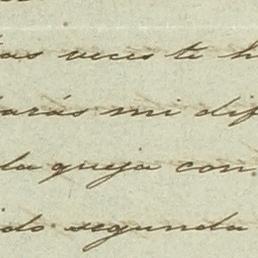 as veces te h
arás mi dif
la queja con
ido segunda